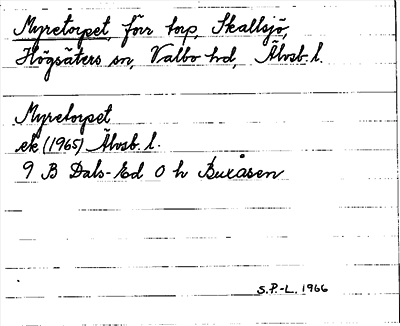 Myretorpet, förr torp, Skallsjö,
Högsäters sn, Valbo hd, Älvsb. l.
Myretorpet
ek (1965) Älvsb. l.
9 B Dals-Ed 0 h Buxåsen
S.P.-L. 1966